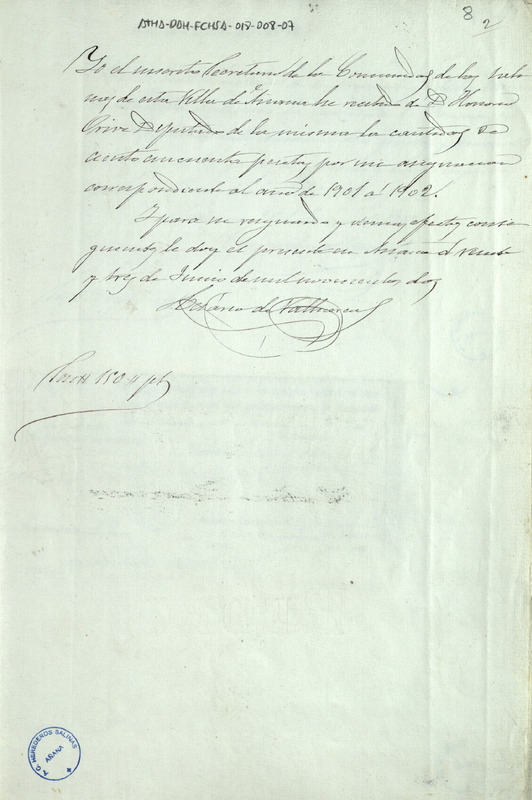 ATHA-DAH-FCHSA-018-008-07
8
2
Yo el infrascrito Secretario de la Comunidad de las Sali
nas de esta Villa de Añana he recibido de D. Honorio
Orive Diputado de la misma la cantidad de
ciento cincuenta pesetas por mi asignacion
correspondiente al año de 1901 á 1902.
Y para su resguardo y demas efectos consi
guientes le doy el presente en Añana á veinte
y tres de Junio de mil novecientos dos
de
150 " pts
A. G. HEREDEROS SALINAS
AÑANA